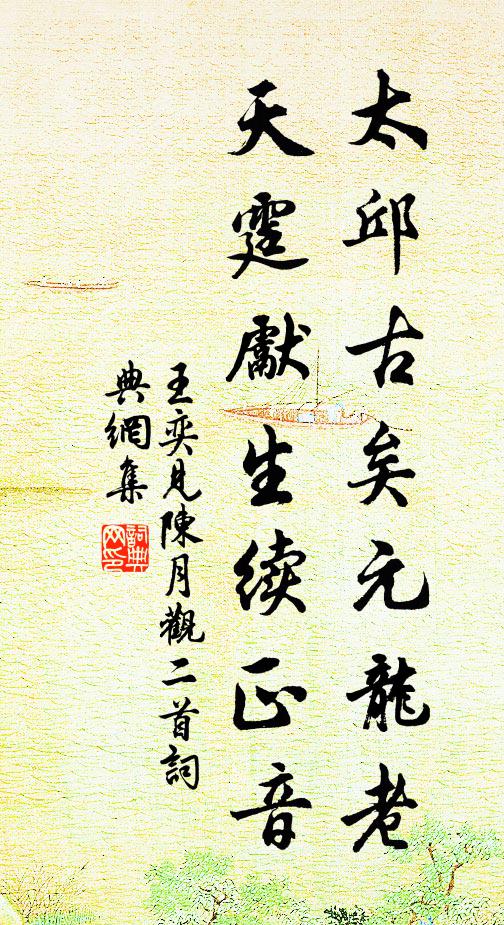 太邱古矣元龍老
天霆獻生續正音
王奕見陳月觀二首詞
典網集
詞典
网印